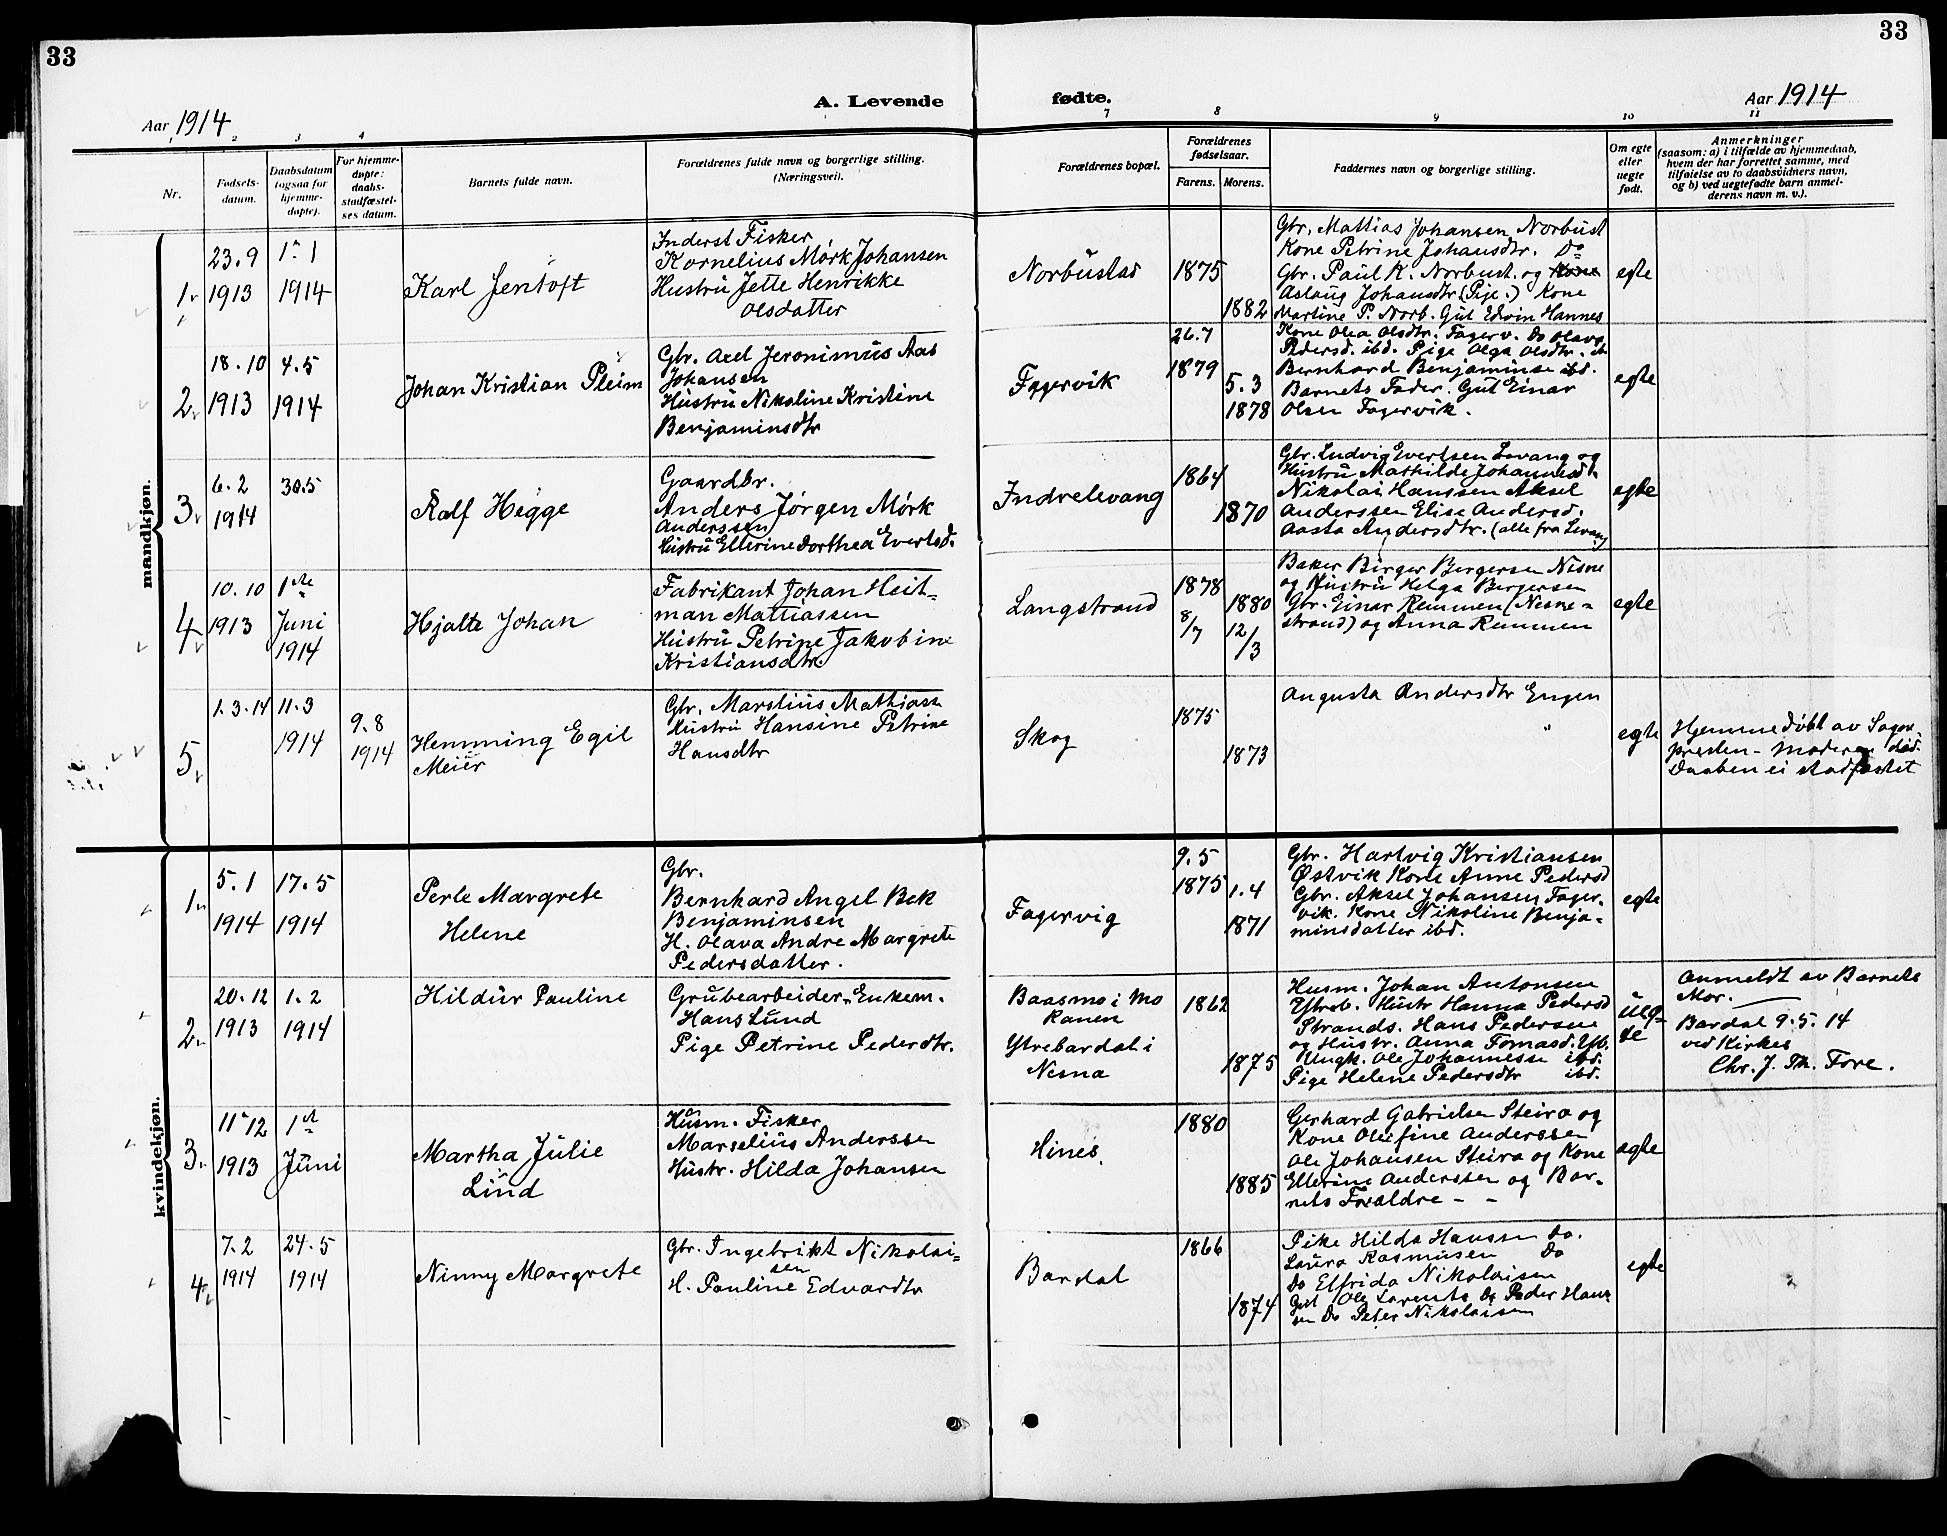 33
33
A. Levende
fødte.
Aar 1914
Aar 1914
1 2 3 4
7 8 9 10 11
Nr.
Fødsels-
datum.
Daabsdatum
(ogsaa for
hjemme-
døpte).
For hjemme-
døpte:
daabs-
stadfæstel-
ses datum.
Barnets fulde navn.
Forældrenes fulde navn og borgerlige stilling.
(Næringsvei).
Forældrenes bopæl.
Forældrenes
fødselsaar.
Farens. Morens.
Faddernes navn og borgerlige stilling.
Om egte
eller
uegte
født.
Anmerkninger
(saasom: a) i tilfælde av hjemmedaab,
hvem der har forrettet samme, med
tilføielse av to daabsvidners navn,
og b) ved uegtefødte barn anmel-
derens navn m. v.).
mandkjøn.
1
23.9
1913
1.1
1914
Karl Jentoft
Inderst Fisker
Kornelius Mørk Johansen
Hustru Jette Henrikke
Olsdatter
Norbustad
1875
1882
Gbr. Mattias Johansen Norbust
Kone Petrine Johansdtr. Do
Gbr. Paul K. Norbust. og Kone
Aslaug Johansdtr (Pige.) Kone
Martine P. Norb. Gut Edvin Hannes
egte
2
18.10
1913
4.5
1914
Johan Kristian Pleim
Gbr. Axel Jeronimus Aas
Johansen
Hustru Nikoline Kristine
Benjaminsdtr
Fagervik
26.7
1879
5.3
1878
Kone Olea Olsdtr. Fagerv. Do Olava
Pedersd. ibd. Pige Olga Olsdtr. ib
Bernhard Benjaminse ibd.
Barnets Fader. Gut Einar
Olsen Fagervik.
egte
3
6.2
1914
30.5
Ralf Hegge
Gaardbr.
Anders Jørgen Mørk
Anderssen
Hustru Ellerine Dorthea Evertsd.
Indrelevang
1864
1870
Gbr. Ludvig Evertsen Levang og
Hustru Mathilde Johannesd.
Nikolai Hanssen Aksel
Anderssen Elise Andersd.
Aasta Andersdtr. (alle fra Levang)
egte
4
10.10
1913
1ste
Juni
1914
Hjalte Johan
Fabrikant Johan Heit-
man Mattiassen
Hustru Petrine Jakobine
Kristiansdtr.
Langstrand
1878
8/7
1880
12/3
Baker Birger Bergersen Nesne
og Hustru Helga Bergersen
Gbr. Einar Remmen (Nesne-
strand) og Anna Remmen
egte
5
1.3.14
11.3
1914
9.8
1914
Hemming Egil
Meier
Gbr. Marelius Mathiass
Hustru Hansine Petrine
Hansdtr
Skog
1875
1873
Augusta Andersdtr Engen
egte
Hjemmedøbt av Sogne-
presten - moderen død.
Daaben ei stadfæstet
kvindekjøn.
1
5.1
1914
17.5
1914
Perle Margrete
Helene
Gbr.
Bernhard Angel Bek
Benjaminsen
H. Olava Andre Margrete
Pedersdatter.
Fagervig
9.5
1875
1.4
1871
Gbr. Hartvig Kristiansen
Østvik Kone Anne Pedersd
Gbr. Aksel Johansen Fager-
vik. Kone Nikoline Benja-
minsdatter ibd.
egte
2
20.12
1913
1.2
1914
Hildur Pauline
Grubearbeider, Enkem.
Hans Lund
Pige Petrine Pederdtr.
Baasmo i Mo
Ranen
Ytrebardal i
Nesna
1862
1875
Husm. Johan Antonsen
Ytreb. Hustr Hanna Pedersd
Strands. Hans Pedersen
og Hustr. Anna Tomasd. Ytb.
Ungk. Ole Johannesse ibd.
Pige Helene Pedersdtr ibd.
ueg-
te
Anmeldt av Barnets
Mor.
Bardal 9.5.14
ved Kirkes
Chr. J. Th. Fore.
3
11-12
1913
1st
Juni
Martha Julie
Lind
Husm. Fisker
Marselius Anderssen
Hustr. Hilda Johansen
Hines.
1880
1885
Gerhard Gabrielsen Steira og
Kone Olefine Anderssen
Ole Johansen Steira og Kone
Ellerine Anderssen og Bar-
nets Forældre - -
egte
4
7.2
1914
24.5
1914
Ninny Margrete
Gbr. Ingebrikt Nikolai-
sen
H. Pauline Edvardtr
Bardal
1866
1874
Pike Hilda Hanssen Do.
Laura Rasmusen Do
Do Elfrida Nikolaisen
Gut Ole Larents Do Peder Han-
sen Do Peter Nikolaisen
egte